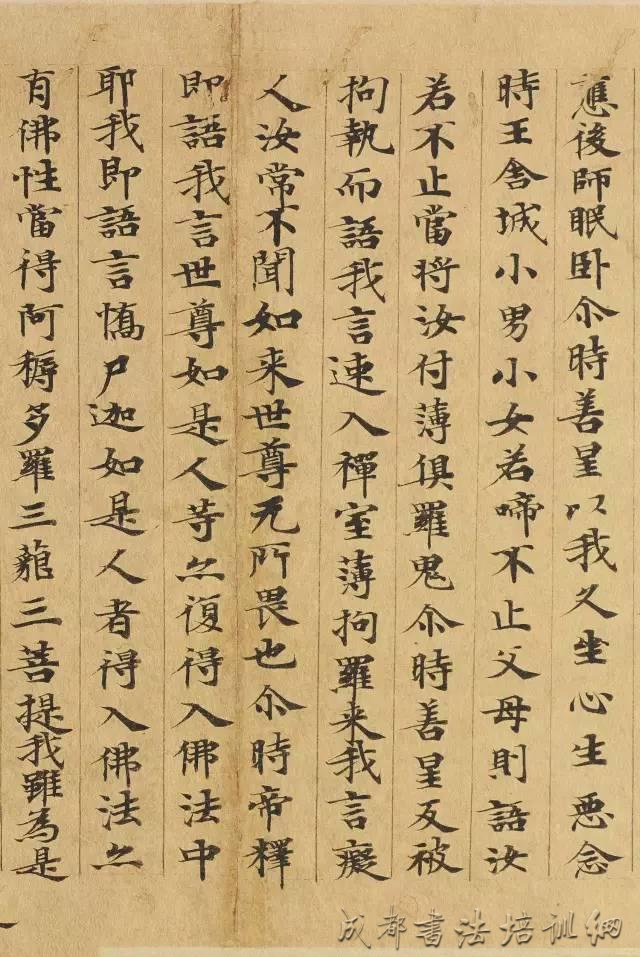 應後師眠卧尒時善星以我久坐心生惡念
時王舍城小男小女若啼不止父母則語汝
若不止當將汝付薄俱羅鬼尒時善星反被
拘執而語我言速入禪室薄拘羅来我言癡
人汝常不聞如来世尊无所畏也尒時帝釋
即語我言世尊如是人等亦復得入佛法中
耶我即語言憍尸迦如是人者得入佛法亦
有佛性當得阿耨多羅三藐三菩提我雖為是
成都書法培训網